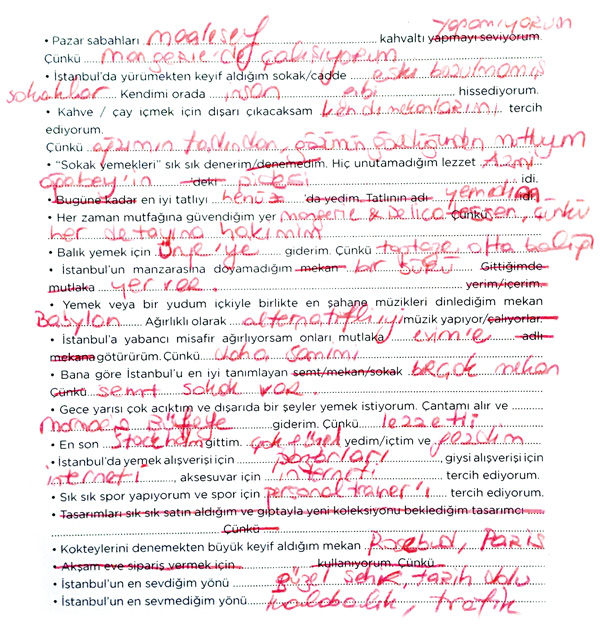 yapamıyorum
• Pazar sabahları maalesef kahvaltı yapmayı seviyorum.
Çünkü mangerie'de çalışıyorum
• İstanbul'da yürümekten keyif aldığım sokak/cadde eski bozulmamış
sokaklar Kendimi orada insan gibi hissediyorum.
• Kahve / çay içmek için dışarı çıkacaksam kendi mekanlarımı tercih
ediyorum.
Çünkü ağzımın tadından, gözümün gördüğünden mutluyum
• "Sokak yemekleri" sık sık denerim/denemedim. Hiç unutamadığım lezzet Azmi
ağabey'in 'deki pidesi idi.
• Bugüne kadar en iyi tatlıyı henüz 'da yedim. Tatlının adı yemedim
• Her zaman mutfağına güvendiğim yer mangerie & Delicatessen, Çünkü çünkü
her detayına hakimim
• Balık yemek için Ünye'ye giderim. Çünkü taptaze olta balığı
• İstanbul'un manzarasına doyamadığım mekan bir sürü Gittiğimde
mutlaka yer var. yerim/içerim.
• Yemek veya bir yudum içkiyle birlikte en şahane müzikleri dinlediğim mekan
Babylon Ağırlıklı olarak alternatif iyi müzik yapıyor/çalıyorlar.
• İstanbul'a yabancı misafir ağırlıyorsam onları mutlaka evime adlı
mekana götürürüm. Çünkü daha samimi
• Bana göre İstanbul'u en iyi tanımlayan semt/mekan/sokak birçok mekan
Çünkü semt sokak var.
• Gece yarısı çok acıktım ve dışarıda bir şeyler yemek istiyorum. Çantamı alır ve
Büfeye giderim. Çünkü lezzetli
• En son Stockholm gittim. çok güzel yedim/içtim ve gezdim
• İstanbul'da yemek alışverişi için pazarları giysi alışverişi için
interneti, aksesuvar için interneti tercih ediyorum.
• Sık sık spor yapıyorum ve spor için personal trainer'ı tercih ediyorum.
• Tasarımları sık sık satın aldığım ve gıptayla yeni koleksiyonu beklediğim tasarımcı
Çünkü
• Kokteylerini denemekten büyük keyif aldığım mekan Rosebud, Paris
• Akşam eve sipariş vermek için kullanıyorum. Çünkü
• İstanbul'un en sevdiğim yönü güzel şehir, tarih dolu
• İstanbul'un en sevmediğim yönü kalabalık, trafik